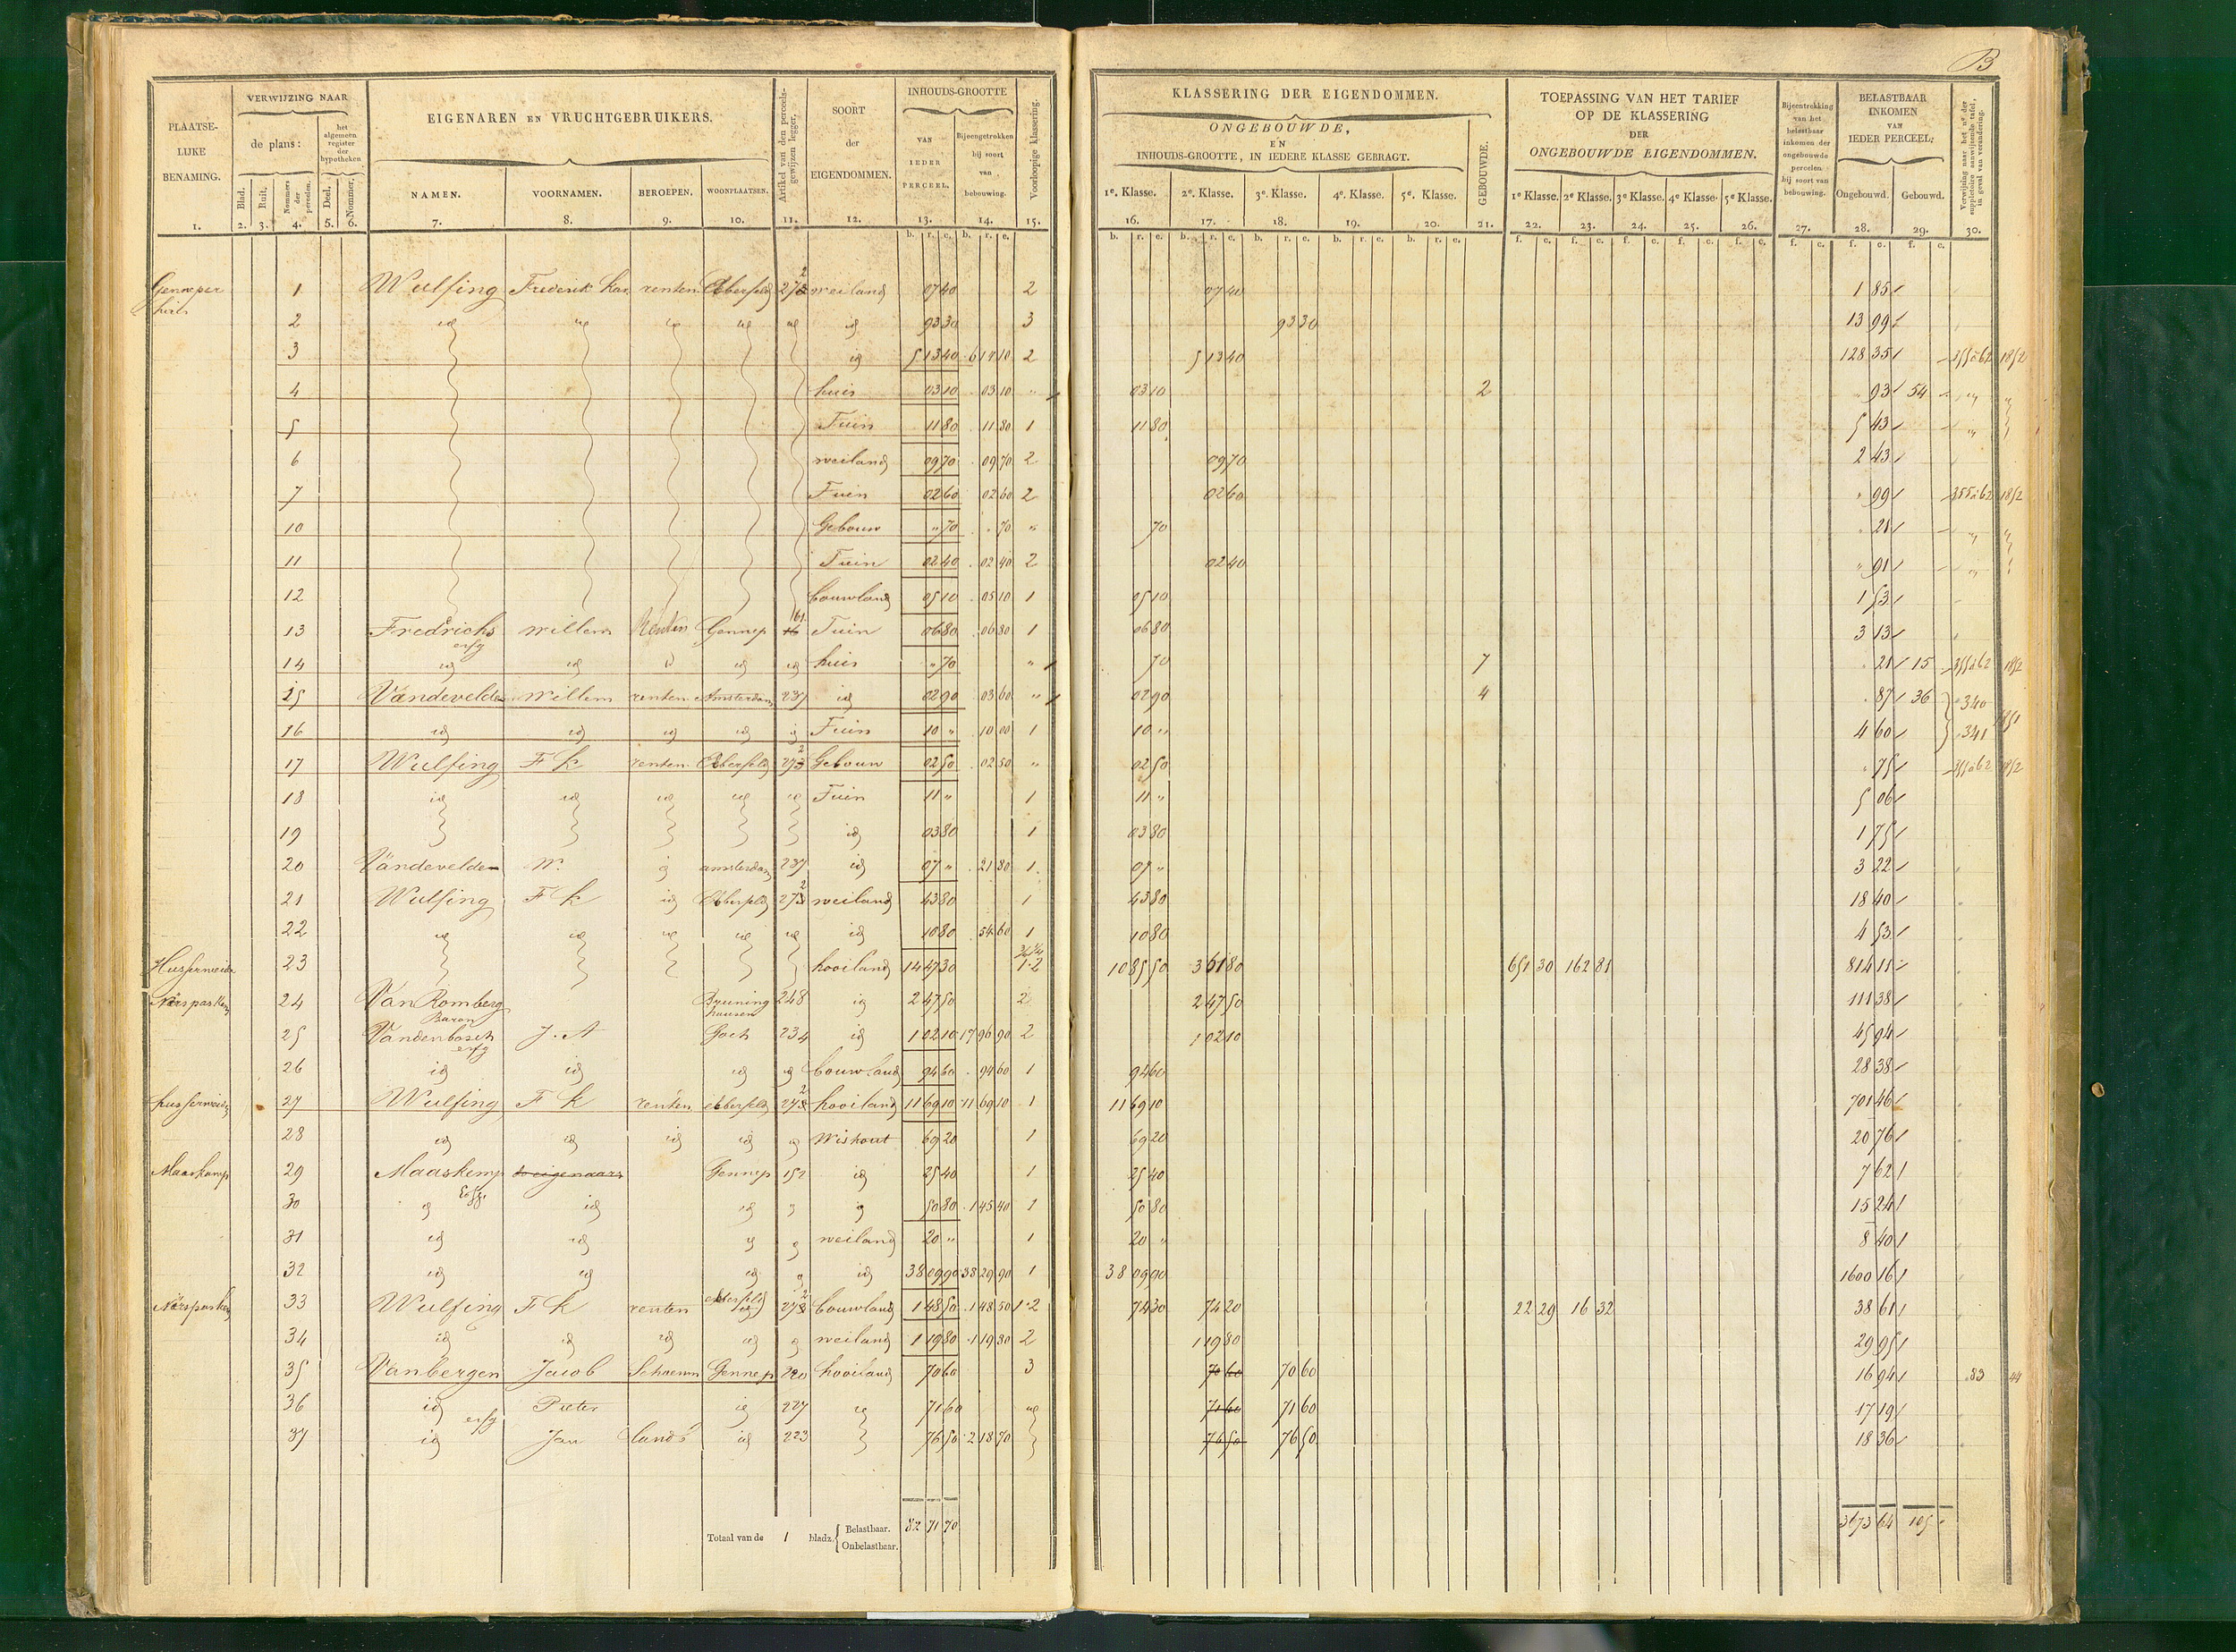 B
PLAATSELIJKE BENAMING.
VERWIJZING NAAR
de plans:
het algemeen register der hypotheken
Blad.
Ruit.
Nommers der perceelen.
Deel.
Nommer.
EIGENAREN EN VRUCHTGEBRUIKERS.
NAMEN.
VOORNAMEN.
BEROEPEN.
WOONPLAATSEN.
Artikel van den perceelsgewijzen legger.
SOORT der EIGENDOMMEN.
INHOUDS-GROOTTE
VAN IEDER PERCEEL.
Bijeengetrokken bij soort van bebouwing.
Voorloopige klassering.
1. 2. 3. 4. 5. 6. 7. 8. 9. 10. 11. 12. 13. 14. 15.
b. r. e. b. r. e.
KLASSERING DER EIGENDOMMEN.
ONGEBOUWDE,
EN
INHOUDS-GROOTTE, IN IEDERE KLASSE GEBRAGT.
GEBOUWDE.
1e. Klasse. 2e. Klasse. 3e. Klasse. 4e. Klasse. 5e. Klasse.
16. 17. 18. 19. 20. 21.
TOEPASSING VAN HET TARIEF
OP DE KLASSERING
DER
ONGEBOUWDE EIGENDOMMEN.
1e Klasse. 2e Klasse. 3e Klasse. 4e Klasse. 5e Klasse.
22. 23. 24. 25. 26.
Bijeentrekking van het belastbaar inkomen der ongebouwde perceelen bij soort van bebouwing.
27.
BELASTBAAR INKOMEN VAN IEDER PERCEEL:
Ongebouwd. Gebouwd.
28. 29.
Verwijzing naar het no. der suppletoire aanwijzende tafel, in geval van verandering.
30.
Genneper huis 1 Wulfing Frederik Kar. renten. Elberfeld 272 weiland 07 40 2 07 40 1 85
2 id id id id id id 93 30 3 93 30 13 99
3 id 5 13 40 6 14 10 2 5 13 40 128 35 355 à 62 1852
4 huis 03 10 03 10 " 03 10 2 " 93 54 "
5 Tuin 11 80 11 80 1 11 80 5 43 "
6 weiland 09 70 09 70 2 09 70 2 43
7 Tuin 02 60 02 60 2 02 60 " 99 355 à 62 1852
10 Gebouw " 70 70 " 70 21 "
11 Tuin 02 40 02 40 2 02 40 " 91 "
12 bouwland 05 10 05 10 1 05 10 1 53
13 Fredrichs erfg Willem Renten Gennep 61 Tuin 06 80 06 80 1 06 80 3 13
14 id id id id id huis " 70 " 70 7 21 15 355 à 62 1852
15 Vandevelden Willem renten Amsterdam 237 id 02 90 03 60 " 02 90 4 87 36 340
16 id id id id id Tuin 10 " 10 00 1 10 " 4 60 341 1851
17 Wulfing F K renten Elberfeld 272 Gebouw 02 50 02 50 " 02 50 75 355 à 62 1852
18 id id id id id Tuin 11 " 1 11 " 5 06
19 id 03 80 1 03 80 1 75
20 Vandevelden W. id amsterdam 237 id 07 " 21 80 1 07 " 3 22
21 Wulfing F K id Elberfeld 272 weiland 43 80 1 43 80 18 40
22 id id id id id id 10 80 54 60 1 10 80 4 53
23 hooiland 14 47 30 1.2 10 85 50 3 61 80 651 30 162 81 814 11
24 Van Romberg Baron Bruninghausen 248 id 2 47 50 2 2 47 50 111 38
25 Vandenbosch erfg J. A Goch 234 id 1 02 10 17 96 90 2 1 02 10 45 94
26 id id id id bouwland 94 60 94 60 1 94 60 28 38
27 Wulfing F K renten Elberfeld 272 hooiland 11 69 10 11 69 10 1 11 69 10 701 46
28 id id id id id Wishout 69 20 1 69 20 20 76
Maaskamp 29 Maaskemp Gennep 152 id 25 40 1 25 40 7 62
30 id id id id id 50 80 1 45 40 1 50 80 15 24
31 id id id id weiland 20 " 1 20 " 8 40
32 id id id id id 38 09 90 38 29 90 1 38 09 90 1600 16
33 Wulfing F K renten Elberfeld 272 bouwland 1 48 50 1 48 50 1.2 74 30 74 20 22 29 16 32 38 61
34 id id id id id weiland 1 19 80 1 19 80 2 1 19 80 29 95
35 Vanbergen Jacob Schoenm Gennep 220 hooiland 70 60 3 70 60 70 60 16 94 83 44
36 id Pieter id 227 id 71 60 id 71 60 71 60 17 19
37 id erfg Jan landb id 223 76 50 2 18 70 76 50 76 50 18 36
Totaal van de 1 bladz. { Belastbaar. 82 71 70
Onbelastbaar.
3673 64 105 "